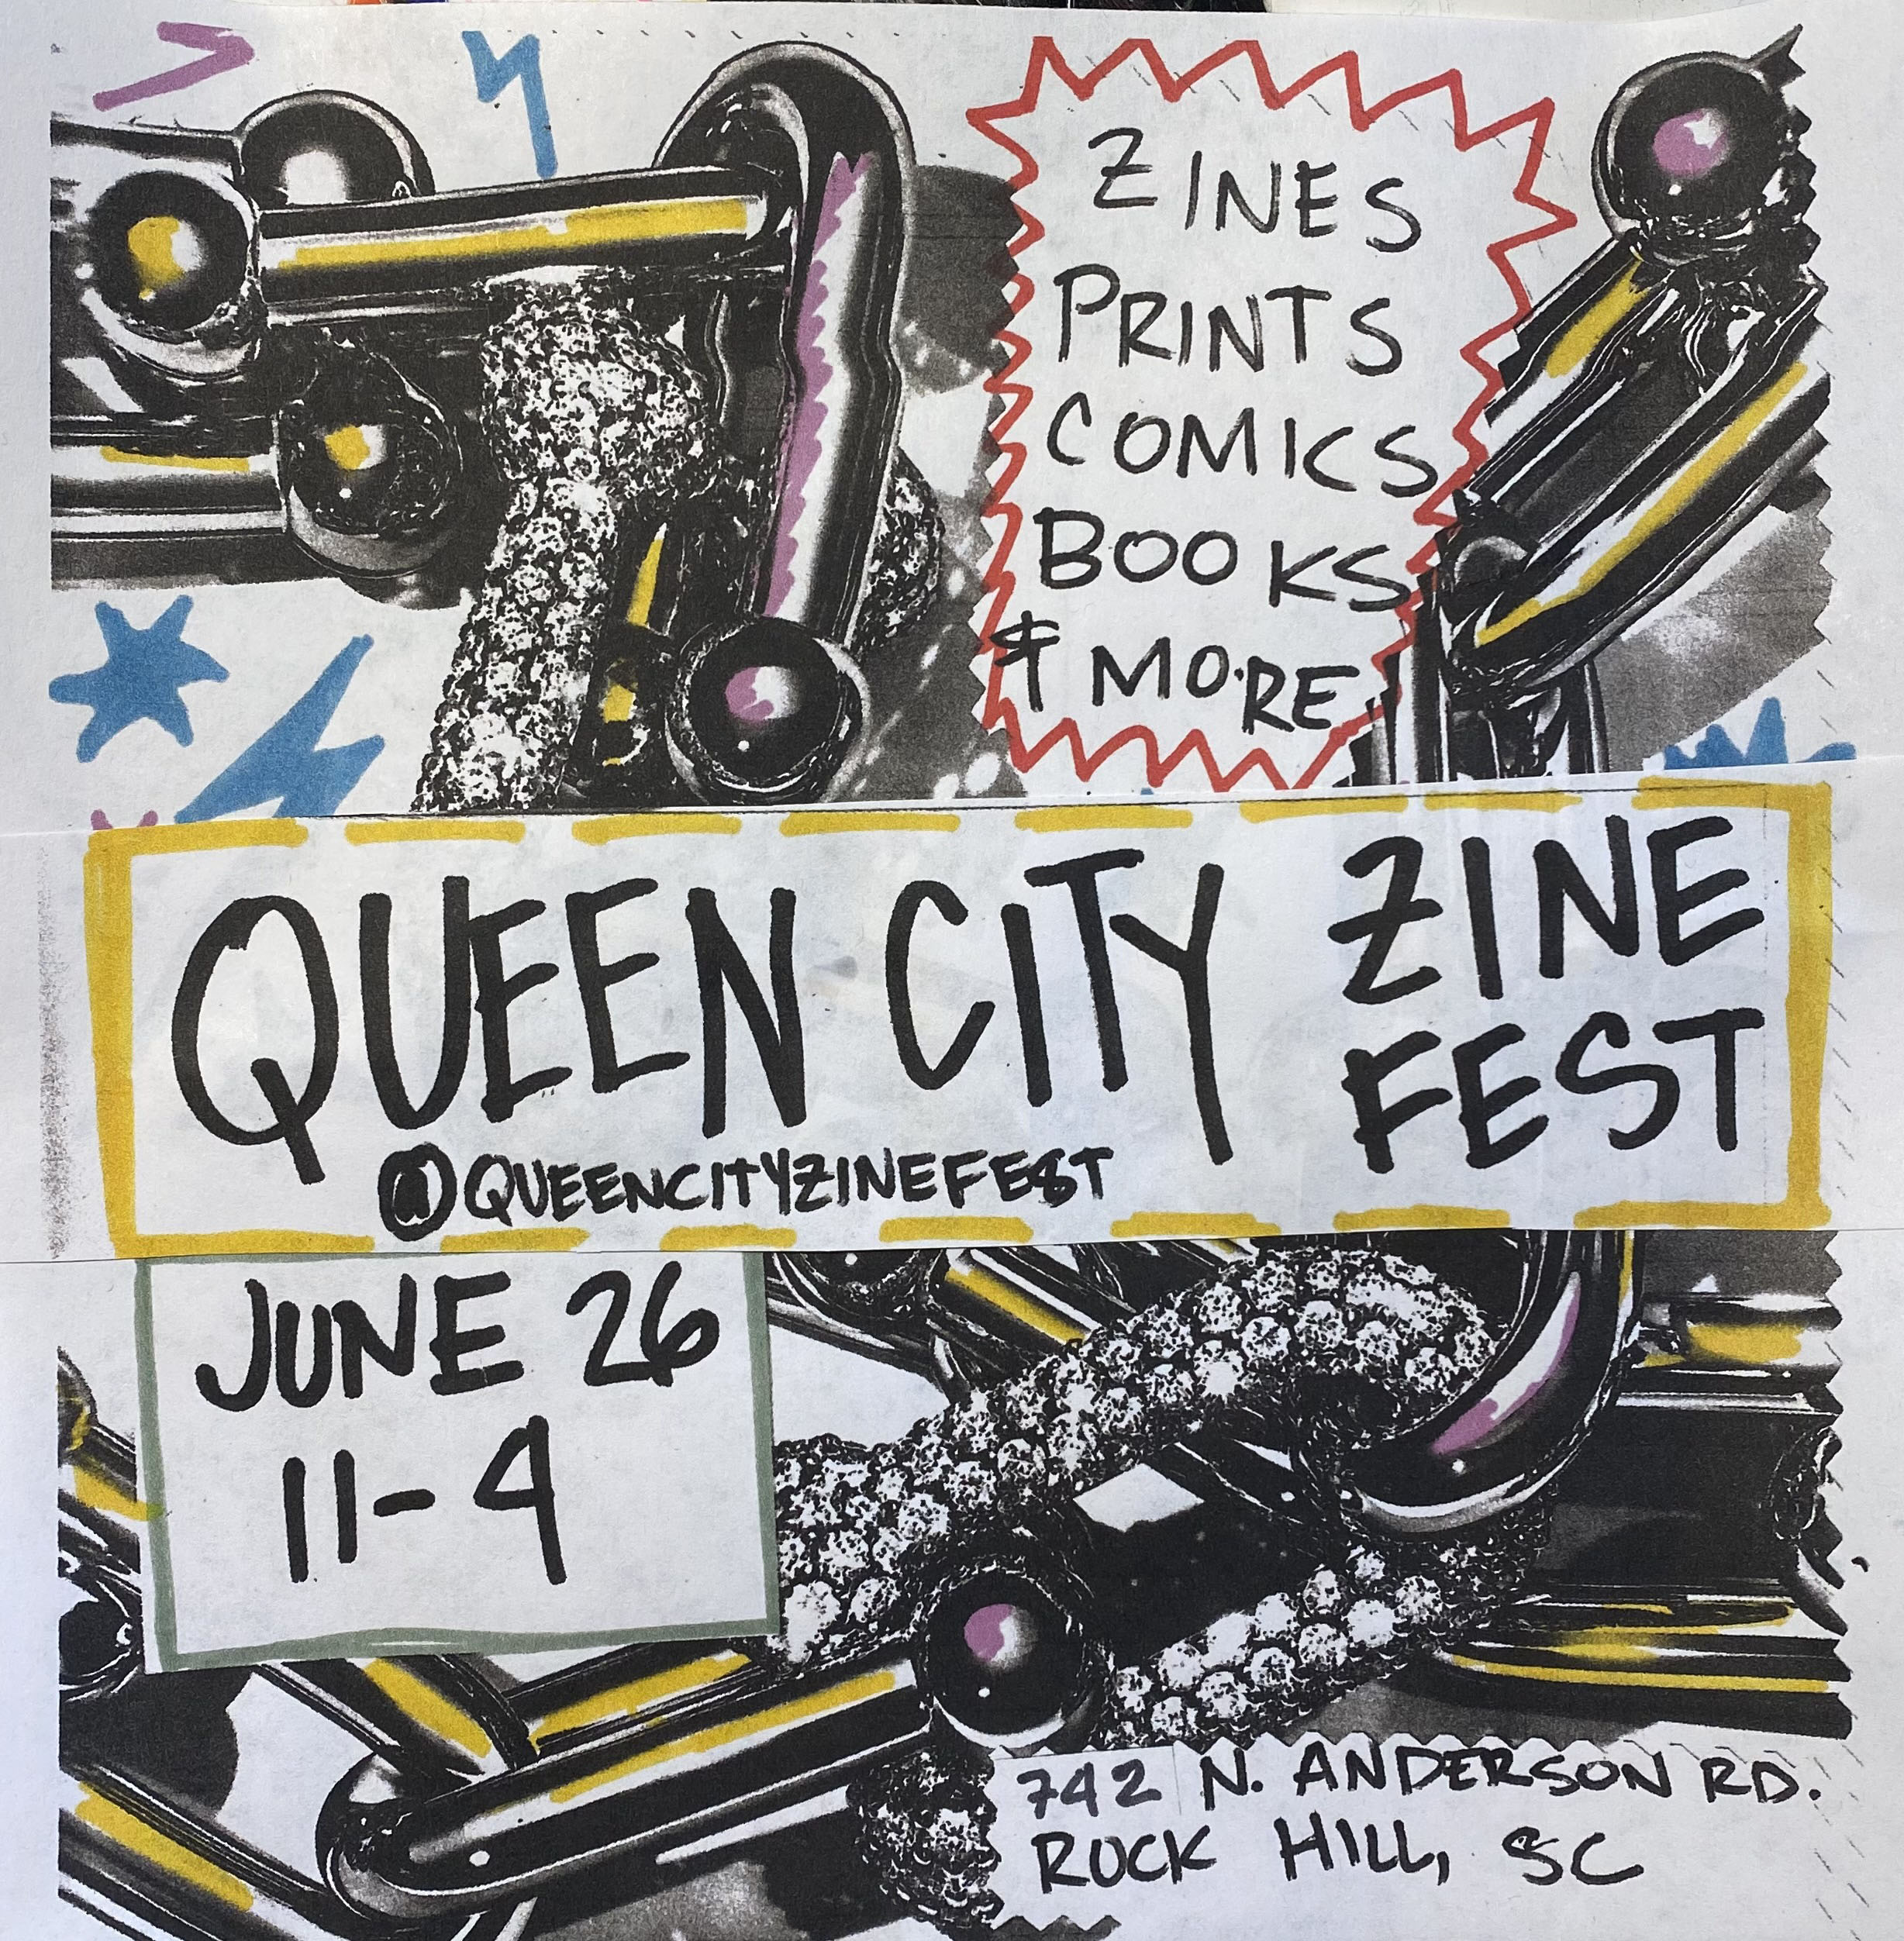 ZINES
PRINTS
COMICS
BOOKS
& MORE
QUEEN CITY ZINE
FEST
@QUEENCITYZINEFEST
JUNE 26
11-4
742 N. ANDERSON RD.
ROCK HILL, SC